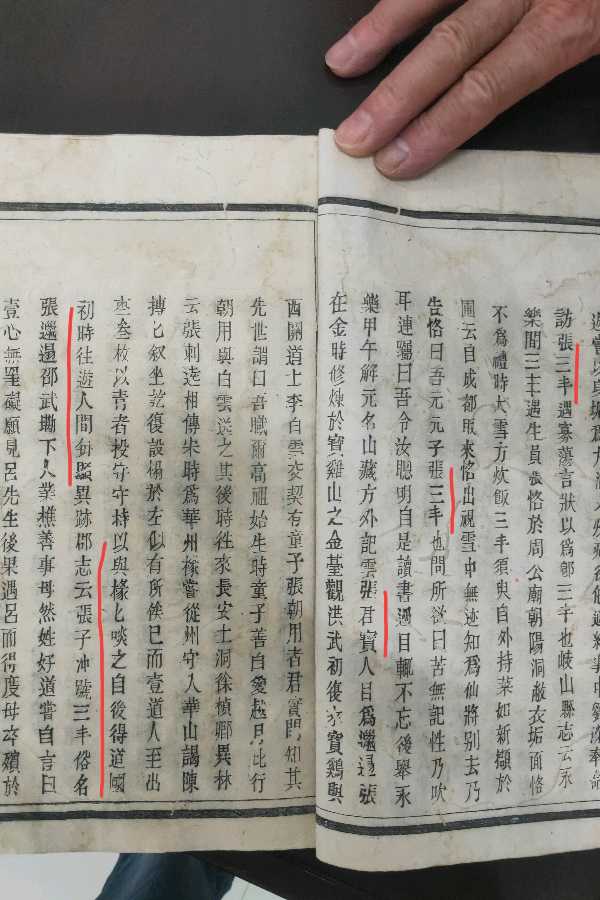 訪張三丰遇寡蕩言狀以爲郎三丰也岐山縣志云永
樂間三丰遇生員張恪於周公廟朝陽洞敝衣垢面恪
不爲禮時大雪方炊飯三丰須臾自外持菜如新擷於
圃云自成都販來恪出視雪中無迹知爲仙將别去乃
告恪曰吾元元子張三丰也問所欲曰苦無記性乃吹
耳連囑曰吾令汝聰明自是讀書過目輒不忘後舉永
樂甲午解元名山藏方外記雲張君寶人目爲邋遢張
在金時修煉於寶雞山之金臺觀洪武初復來寶鷄與
西關道士李白雲交契有童子張朝用者君寶問知其
先世謂曰吾職爾高祖始生時童子善自愛越月北行
朝用與白雲送之其後時往來長安土洞徐楨卿異林
云張刺達相傳宋時爲華州掾嘗從州守入華山謁陳
摶匕叙坐復設榻於左似有所俟已而壹道人至出
棗叁枚以青者投守守持以與掾匕啖之自後得道國
初時往遊人間每顯異跡郡志云張子冲號三丰俗名
張邋遢邵武下人業樵善事母然姓好道嘗自言曰
壹心無罣礙願見呂先生後果遇呂而得度母卒殯於